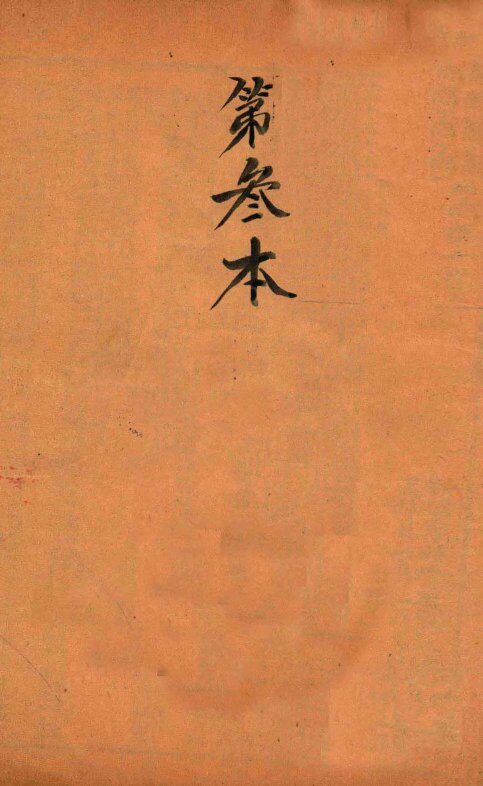 第叁本